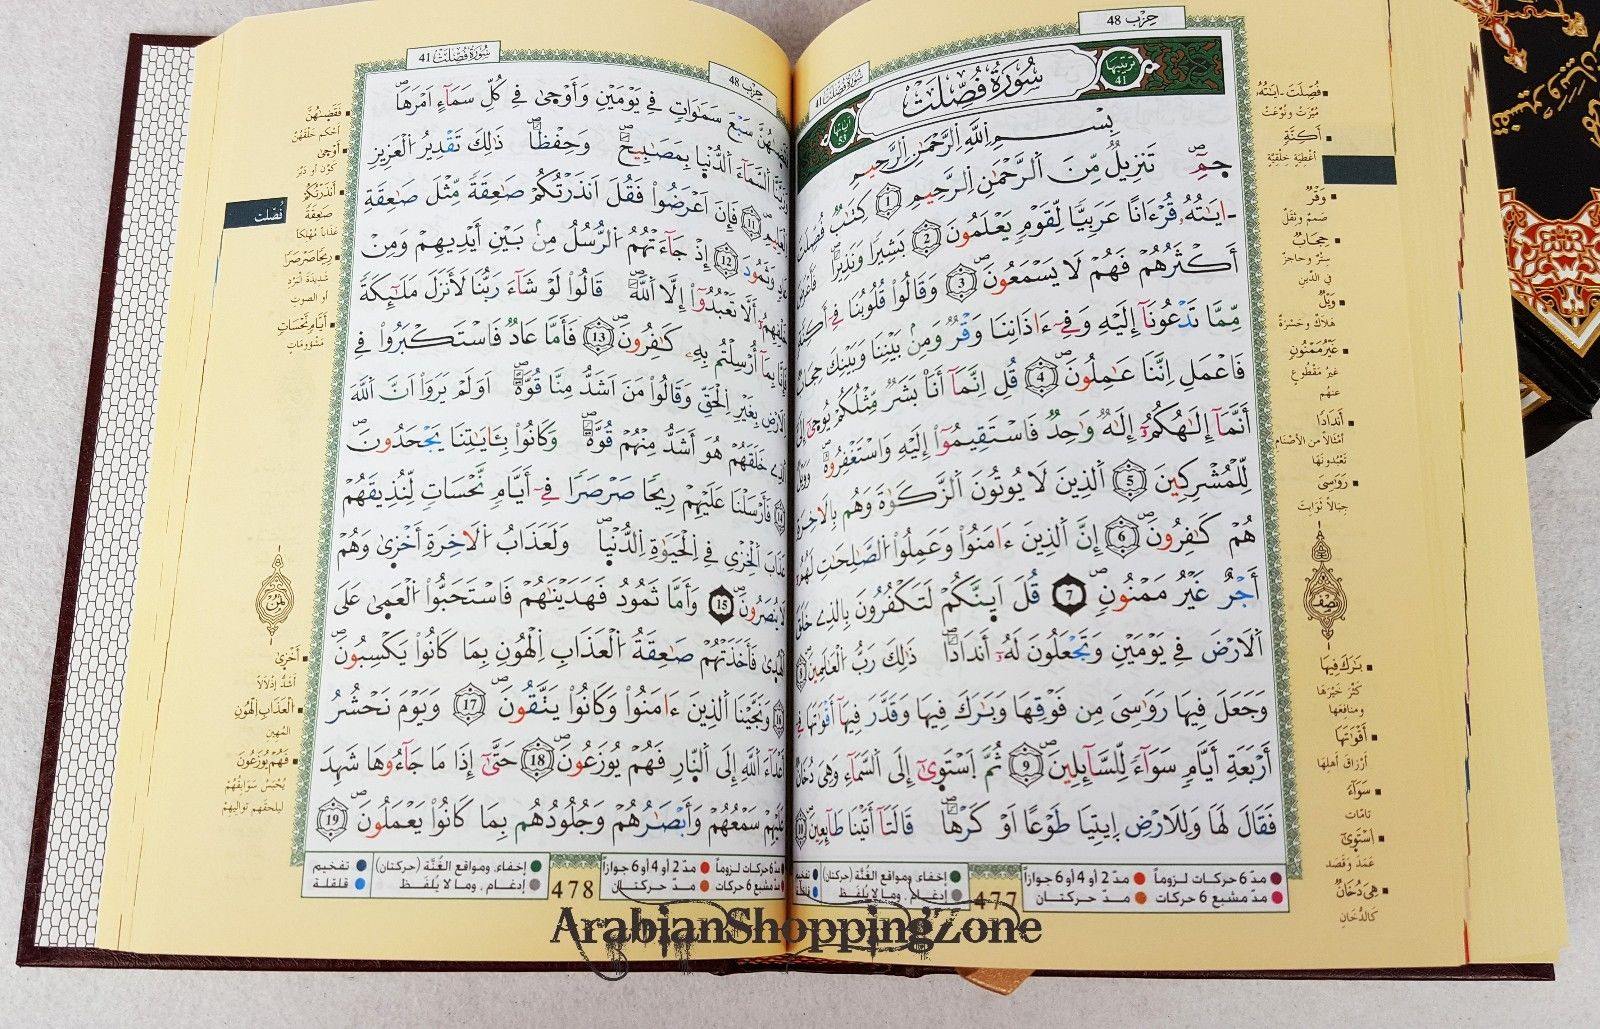 حِزْب 48
سُورَةُ فُصِّلَتْ 41
تَرْتِيبُهَا 41
سُورَةُ فُصِّلَتْ
آيَاتُهَا 53
بِسْمِ اِللَّهِ اِلرَّحْمَٰنِ اِلرَّحِيمِ
حَمِٓ تَنزِيلٌ مِّنَ اَلرَّحْمَٰنِ اِلرَّحِيمِ 1 كِتَٰبٌ فُصِّلَتَ
ءَايَٰتُهُۥ قُرْءَانًا عَرَبِيًّا لِّقَوْمٍ يَعْلَمُونَ 2 بَشِيرًا وَنَذِيرًا فَأَعْرَضَ
أَكْثَرُهُمْ فَهُمْ لَا يَسْمَعُونَ 3 وَقَالُوا۟ قُلُوبُنَا فِےٓ أَكِنَّةٍ
مِّمَّا تَدْعُونَآ إِلَيْهِ وَفِےٓ ءَاذَانِنَا وَقْرٌ وَمِنۢ بَيْنِنَا وَبَيْنِكَ حِجَابٌ
فَاعْمَلِ اِنَّنَا عَٰمِلُونَ 4 قُلِ اِنَّمَآ أَنَا۠ بَشَرٌ مِّثْلُكُمْ يُوحَىٰٓ إِلَىَّ
أَنَّمَآ إِلَٰهُكُمُۥٓ إِلَٰهٌ وَٰحِدٌ فَاسْتَقِيمُوٓا۟ إِلَيْهِ وَاسْتَغْفِرُوهُ وَوَيْلٌ
لِّلْمُشْرِكِينَ 5 اَلذِينَ لَا يُوتُونَ اَلزَّكَوٰةَ وَهُم بِالَاخِرَةِ
هُمْ كَٰفِرُونَ 6 إِنَّ اَلذِينَ ءَامَنُوا۟ وَعَمِلُوا۟ اُلصَّٰلِحَٰتِ لَهُمُۥٓ
أَجْرٌ غَيْرُ مَمْنُونٍ 7 قُلَ اَينَّكُمْ لَتَكْفُرُونَ بِالذِے خَلَقَ
اَلَارْضَ فِي يَوْمَيْنِ وَتَجْعَلُونَ لَهُۥٓ أَندَادًا ذَٰلِكَ رَبُّ اُلْعَٰلَمِينَ 8
وَجَعَلَ فِيهَا رَوَٰسِىَ مِن فَوْقِهَا وَبَٰرَكَ فِيهَا وَقَدَّرَ فِيهَآ أَقْوَٰتَهَا فِےٓ
أَرْبَعَةِ أَيَّامٍ سَوَآءً لِّلسَّآئِلِينَ 9 ثُمَّ اَسْتَوَىٰٓ إِلَى اَلسَّمَآءِ وَهْىَ دُخَانٌ
فَقَالَ لَهَا وَلِلَارْضِ اِيتِيَا طَوْعًا اَوْ كَرْهًا قَالَتَآ أَتَيْنَا طَآئِعِينَ 10
فُصِّلَتَ ءَايَٰتُهُۥ
مُيِّزَتْ وَنُوِّعَتْ
أَكِنَّةٍ
أَغْطِيَةٍ خِلْقِيَّةٍ
وَقْرٌ
صَمَمٌ وَثِقَلٌ
حِجَابٌ
سِتْرٌ وحاجزٌ
في الدِّينِ
وَيْلٌ
هَلَاكٌ وحَسْرَةٌ
غَيْرُ مَمْنُونٍ
غَيرُ مَقْطُوعٍ
عنهم
أَندَادًا
أمْثَالاً من الأصْنَامِ
تَعْبُدُونَهَا
رَوَٰسِىَ
جِبَالاً ثَوَابِتَ
نِصْف
بَٰرَكَ فِيهَا
كَثَّرَ خَيْرَهَا
ومنافِعَها
أَقْوَٰتَهَا
أَرْزَاقَ أَهلِهَا
سَوَآءً
تَامَّات
اَسْتَوَىٰٓ
عَمَدَ وَقَصَدَ
هِىَ دُخَانٌ
كَالدُّخَانِ
مدّ 6 حركات لزوماً مدّ 2 أو 4 أو 6 جوازاً إخفاء، ومواقع الغُنَّة (حركتان) تفخيم
مدّ مشبع 6 حركات مدّ حركتان إدغام، وما لا يُلفَظ قلقلة
477
سُورَةُ فُصِّلَتْ 41
حِزْب 48
فَقَضَىٰهُنَّ سَبْعَ سَمَٰوَاتٍ فِي يَوْمَيْنِ وَأَوْحَىٰ فِي كُلِّ سَمَآءٍ اَمْرَهَا
وَزَيَّنَّا اَلسَّمَآءَ اَلدُّنْيَا بِمَصَٰبِيحَ وَحِفْظًا ذَٰلِكَ تَقْدِيرُ اُلْعَزِيزِ
اِلْعَلِيمِ 11 فَإِنَ اَعْرَضُوا۟ فَقُلَ اَنذَرْتُكُمْ صَٰعِقَةً مِّثْلَ صَٰعِقَةِ
عَادٍ وَثَمُودَ 12 إِذْ جَآءَتْهُمُ اُلرُّسُلُ مِنۢ بَيْنِ أَيْدِيهِمْ وَمِنْ
خَلْفِهِمُۥٓ أَلَّا تَعْبُدُوٓا۟ إِلَّا اَللَّهَ قَالُوا۟ لَوْ شَآءَ رَبُّنَا لَأَنزَلَ مَلَٰٓئِكَةً
فَإِنَّا بِمَآ أُرْسِلْتُم بِهِۦ كَٰفِرُونَ 13 فَأَمَّا عَادٌ فَاسْتَكْبَرُوا۟ فِي
اِلَارْضِ بِغَيْرِ اِلْحَقِّ وَقَالُوا۟ مَنَ اَشَدُّ مِنَّا قُوَّةً اَوَلَمْ يَرَوَا۟ اَنَّ اَللَّهَ
اَلذِے خَلَقَهُمْ هُوَ أَشَدُّ مِنْهُمْ قُوَّةً وَكَانُوا۟ بِـَٔايَٰتِنَا يَجْحَدُونَ
14 فَأَرْسَلْنَا عَلَيْهِمْ رِيحًا صَرْصَرًا فِےٓ أَيَّامٍ نَّحْسَاتٍ لِّنُذِيقَهُمْ
عَذَابَ اَلْخِزْيِ فِي اِلْحَيَوٰةِ اِلدُّنْيَا وَلَعَذَابُ اُلَاخِرَةِ أَخْزَىٰ وَهُمْ
لَا يُنصَرُونَ 15 وَأَمَّا ثَمُودُ فَهَدَيْنَٰهُمْ فَاسْتَحَبُّوا۟ اُلْعَمَىٰ عَلَى
اَلْهُدَىٰ فَأَخَذَتْهُمْ صَٰعِقَةُ اُلْعَذَابِ اِلْهُونِ بِمَا كَانُوا۟ يَكْسِبُونَ
16 وَنَجَّيْنَا اَلذِينَ ءَامَنُوا۟ وَكَانُوا۟ يَتَّقُونَ 17 وَيَوْمَ نَحْشُرُ
أَعْدَآءَ اَللَّهِ إِلَى اَلنَّارِ فَهُمْ يُوزَعُونَ 18 حَتَّىٰٓ إِذَا مَا جَآءُوهَا شَهِدَ
عَلَيْهِمْ سَمْعُهُمْ وَأَبْصَٰرُهُمْ وَجُلُودُهُم بِمَا كَانُوا۟ يَعْمَلُونَ 19
فَقَضَىٰهُنَّ
أحْكَمَ خَلْقَهُنَّ
أَوْحَىٰ
كوّنَ أو دَبّرَ
أَنذَرْتُكُمْ
صَٰعِقَةً
عَذَاباً مُهْلِكاً
رِيحًا صَرْصَرًا
شَدِيدَةَ البَرْدِ
أو الصوتِ
أَيَّامٍ نَّحْسَاتٍ
مَشْؤُومَاتٍ
فُصِّلَت
ثُمُن
أَخْزَىٰ
أَشَدُّ إِذْلَالاً
اَلْعَذَابِ اِلْهُونِ
المُهين
فَهُمْ يُوزَعُونَ
يُحْبَسُ سَوَابِقُهُمْ
ليلحقَهم تواليهِمْ
مدّ 2 أو 4 أو 6 جوازاً إخفاء، ومواقع الغُنَّة (حركتان) تفخيم
مدّ مشبع 6 حركات مدّ حركتان إدغام، وما لا يُلفَظ قلقلة
478
ArabianShoppingZone